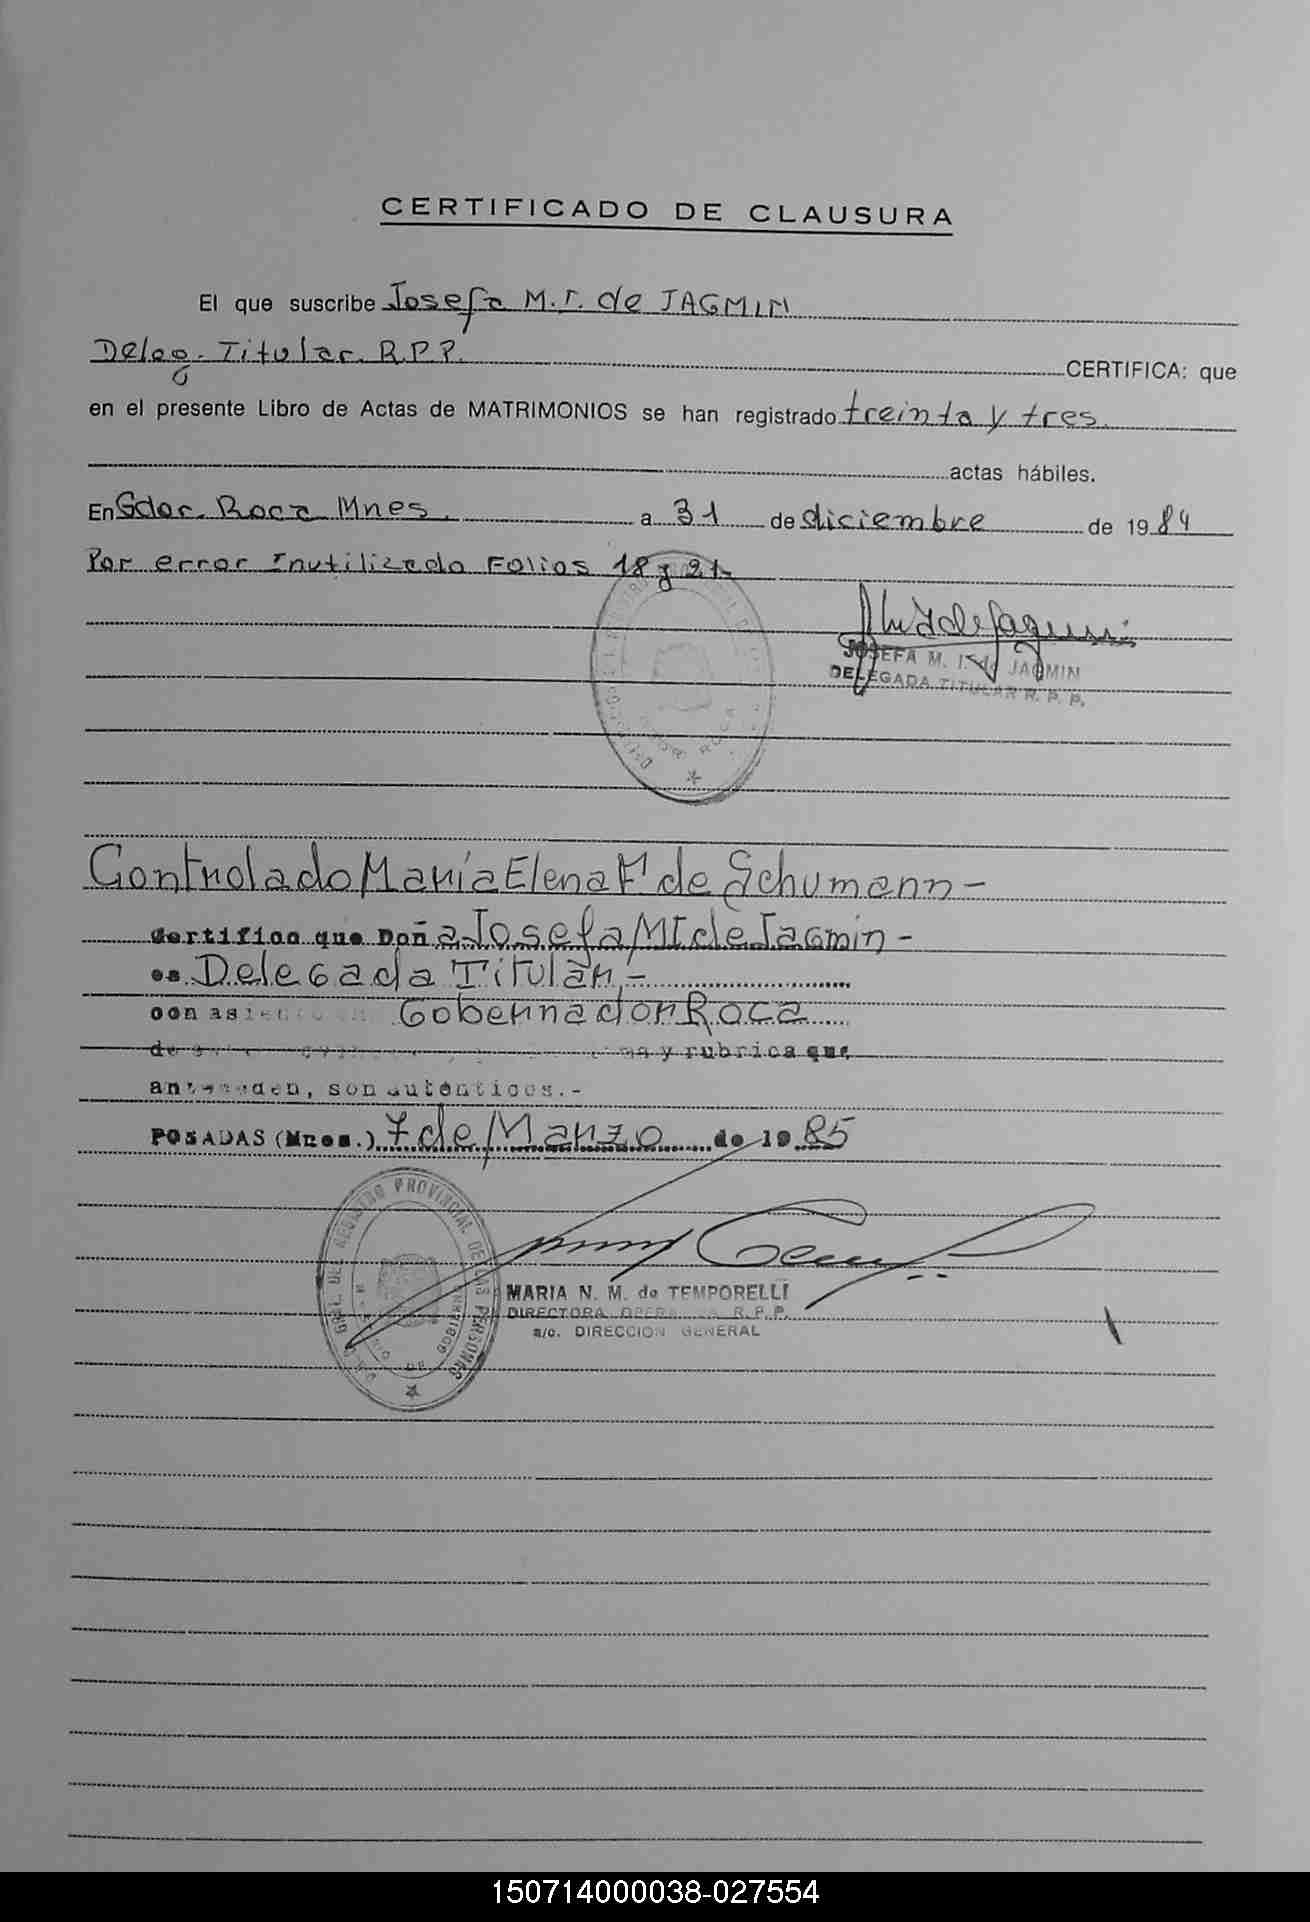 CERTIFICADO DE CLAUSURA
El que suscribe Josefa M. I. de JAGMIN
Deleg. Titular. R.P.P. CERTIFICA: que
en el presente Libro de Actas de MATRIMONIOS se han registrado treinta y tres.
actas hábiles.
En Gdor. Roca Mnes. a 31 de diciembre de 1984
Por error Inutilizado Folios 18 y 21.
JOSEFA M. I. de JAGMIN
DELEGADA TITULAR R. P. P.
Controlado María Elena F. de Schumann -
Certifico que Doña Josefa M I de Jagmin -
es Delegada Titular -
con asiento en Gobernador Roca
de y rubrica que
anteceden, son auténticos.-
POSADAS (Mnes.) 7 de Marzo de 1985
GRAL. DEL REGISTRO PROVINCIAL DE LAS PERSONAS
MARIA N. M. de TEMPORELLI
DIRECTORA R. P. P.
a/c. DIRECCION GENERAL
150714000038-027554